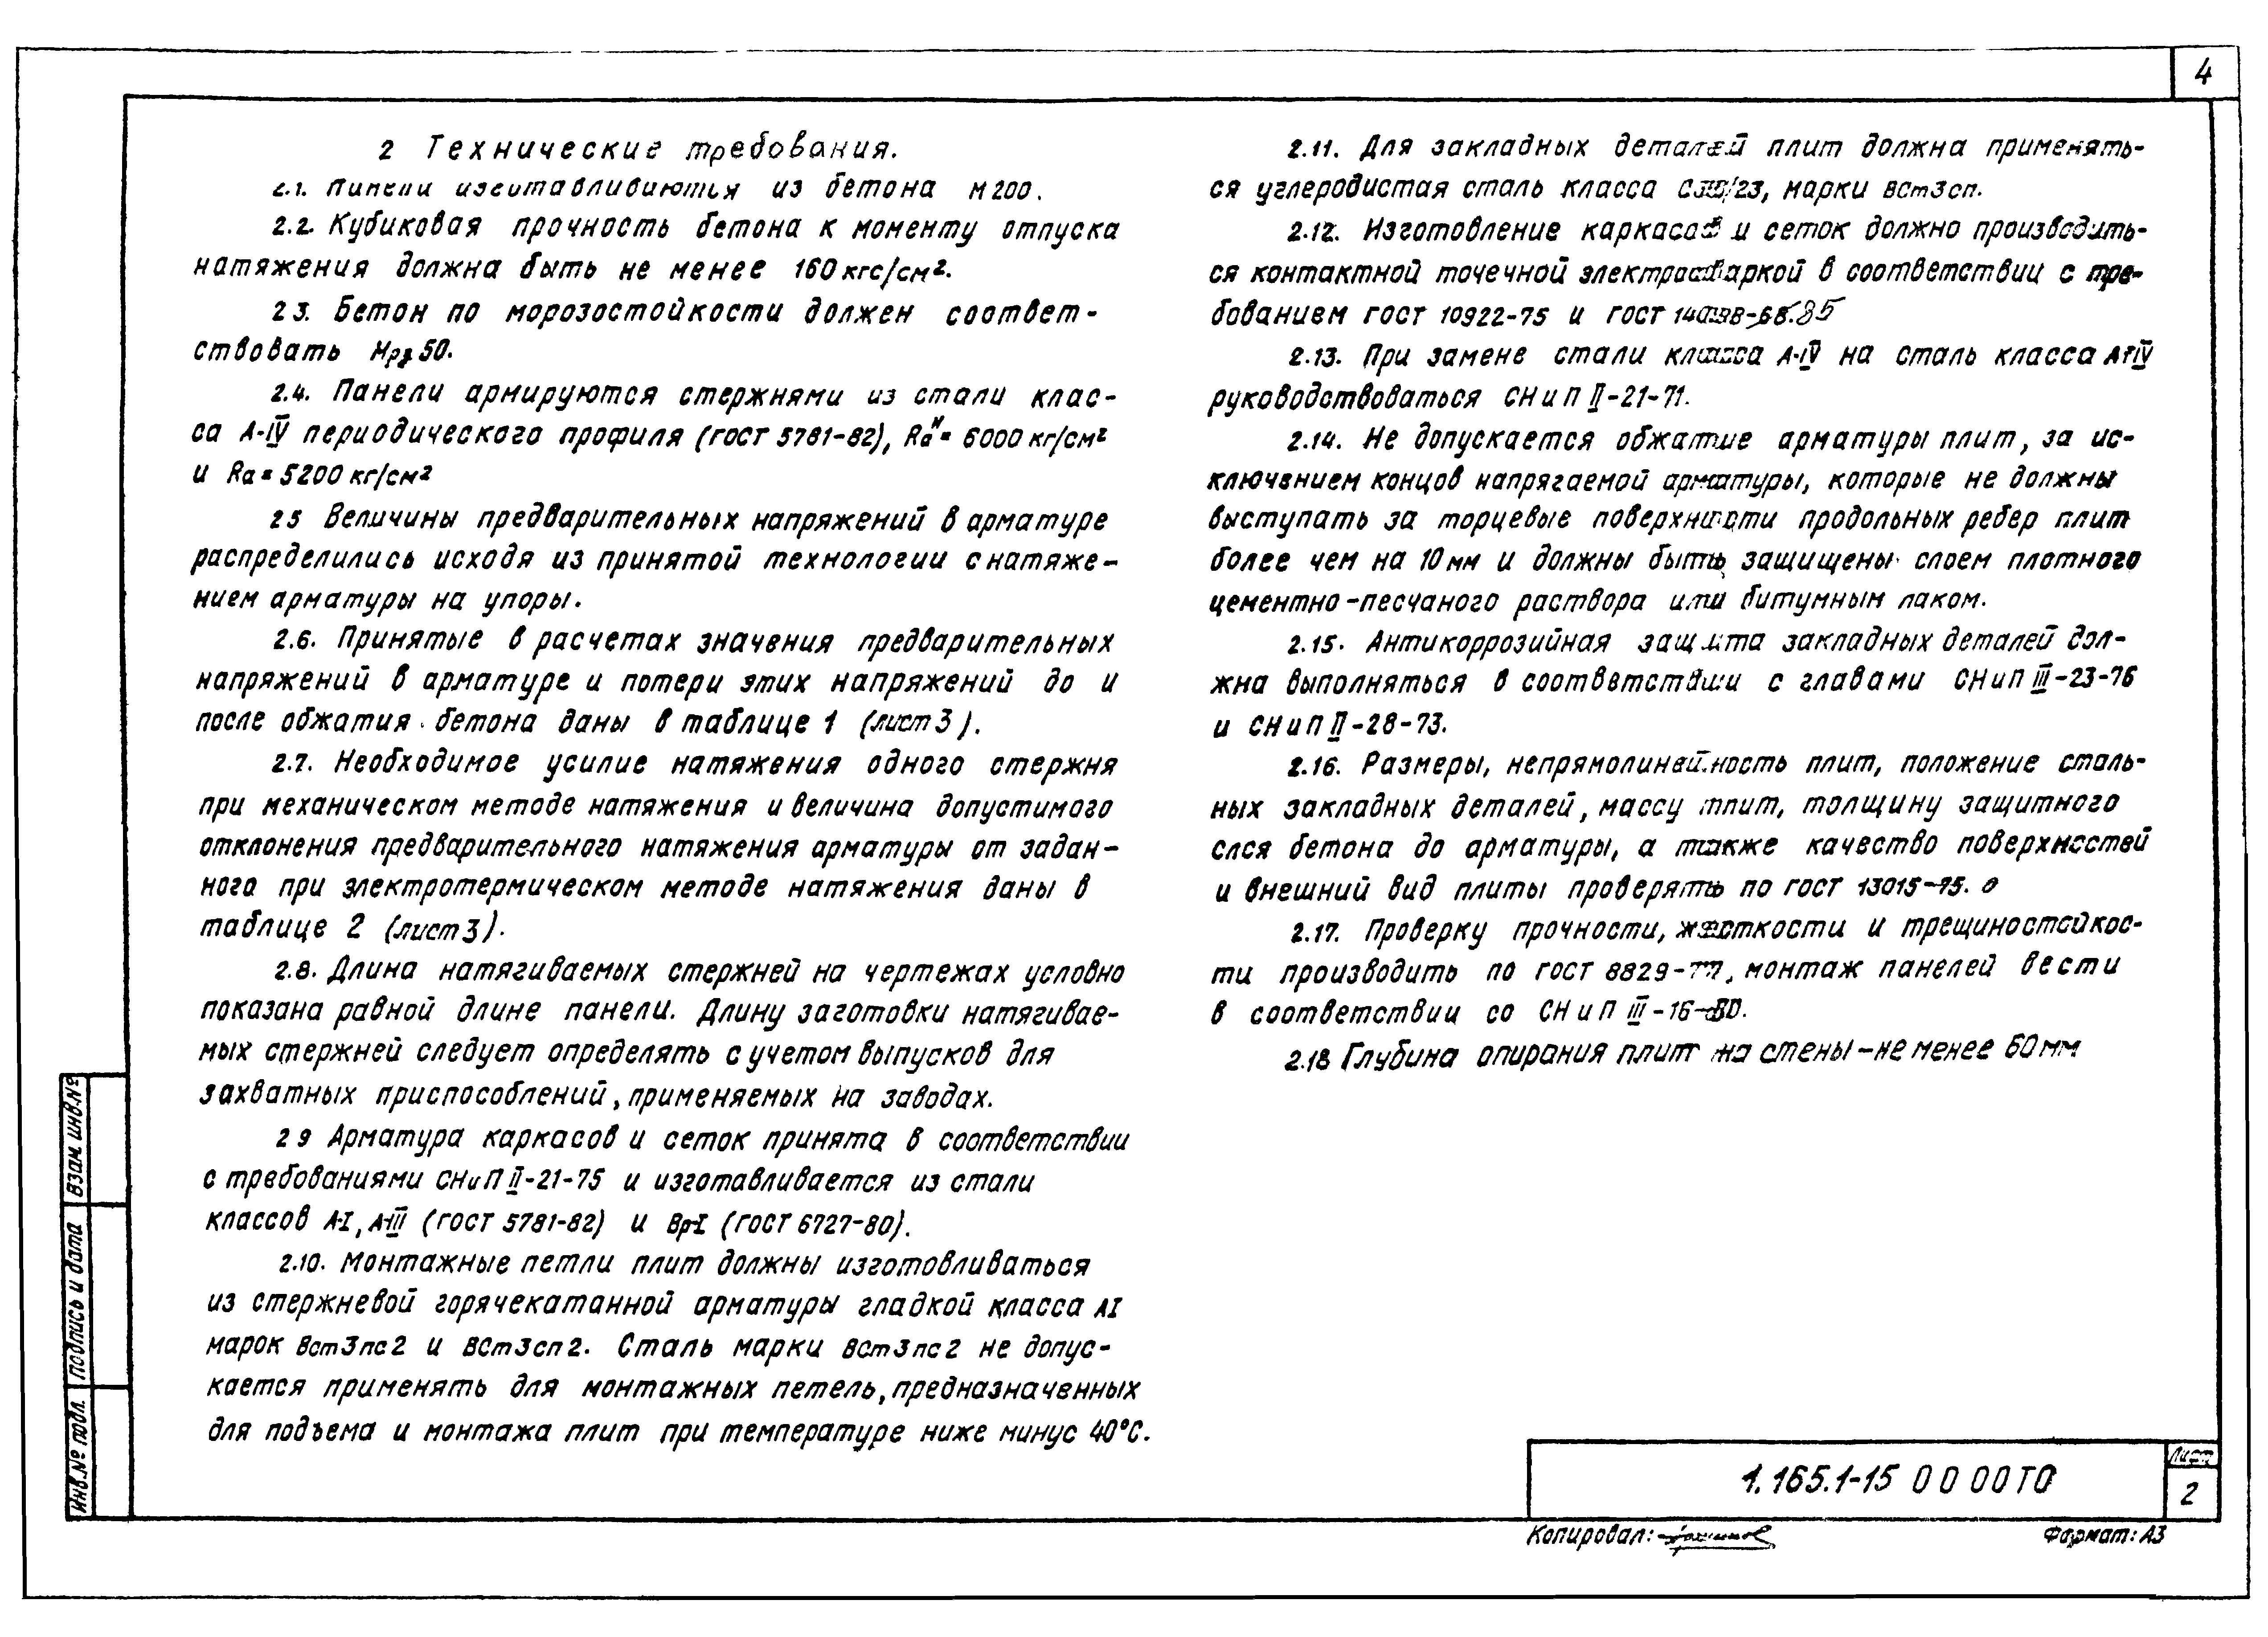 4
2 Технические требования.
2.1. Панели изготавливаются из бетона М200.
2.2. Кубиковая прочность бетона к моменту отпуска
натяжения должна быть не менее 160 кгс/см².
2 3. Бетон по морозостойкости должен соответ-
ствовать Мрз 50.
2.4. Панели армируются стержнями из стали клас-
са А-IV периодического профиля (гост 5781-82), Rаᴴ = 6000 кг/см²
и Rа = 5200 кг/см²
2 5 Величины предварительных напряжений в арматуре
распределились исходя из принятой технологии с натяже-
нием арматуры на упоры.
2.6. Принятые в расчетах значения предварительных
напряжений в арматуре и потери этих напряжений до и
после обжатия бетона даны в таблице 1 (лист 3).
2.7. Необходимое усилие натяжения одного стержня
при механическом методе натяжения и величина допустимого
отклонения предварительного натяжения арматуры от задан-
ного при электротермическом методе натяжения даны в
таблице 2 (лист 3).
2.8. Длина натягиваемых стержней на чертежах условно
показана равной длине панели. Длину заготовки натягивае-
мых стержней следует определять с учетом выпусков для
захватных приспособлений, применяемых на заводах.
2 9 Арматура каркасов и сеток принята в соответствии
с требованиями СНиП II-21-75 и изготавливается из стали
классов А-I, А-III (гост 5781-82) и Вр-I (гост 6727-80).
2.10. Монтажные петли плит должны изготовливаться
из стержневой горячекатанной арматуры гладкой класса АI
марок ВСт3пс2 и ВСт3сп2. Сталь марки ВСт3пс2 не допус-
кается применять для монтажных петель, предназначенных
для подъема и монтажа плит при температуре ниже минус 40°С.
2.11. Для закладных деталей плит должна применять-
ся углеродистая сталь класса С38/23, марки ВСт3сп.
2.12. Изготовление каркасов и сеток должно производить-
ся контактной точечной электросваркой в соответствии с тре-
бованием гост 10922-75 и гост 14098-68. 85
2.13. При замене стали класса А-IV на сталь класса АтIV
руководствоваться СНиП II-21-71.
2.14. Не допускается обжатие арматуры плит, за ис-
ключением концов напрягаемой арматуры, которые не должны
выступать за торцевые поверхности продольных ребер плит
более чем на 10 мм и должны быть защищены слоем плотного
цементно-песчаного раствора или битумным лаком.
2.15. Антикоррозийная защита закладных деталей дол-
жна выполняться в соответствии с главами СНиП III-23-76
и СНиП II-28-73.
2.16. Размеры, непрямолинейность плит, положение сталь-
ных закладных деталей, массу плит, толщину защитного
слоя бетона до арматуры, а также качество поверхностей
и внешний вид плиты проверять по гост 13015-75.
2.17. Проверку прочности, жесткости и трещиностойкос-
ти производить по гост 8829-77, монтаж панелей вести
в соответствии со СНиП III-16-80.
2.18 Глубина опирания плит на стены - не менее 60 мм
Взам. инв.№
Подпись и дата
Инв.№ подл.
1.165.1-15 0 0 00 ТО
Лист
2
Копировал:
Формат: А3